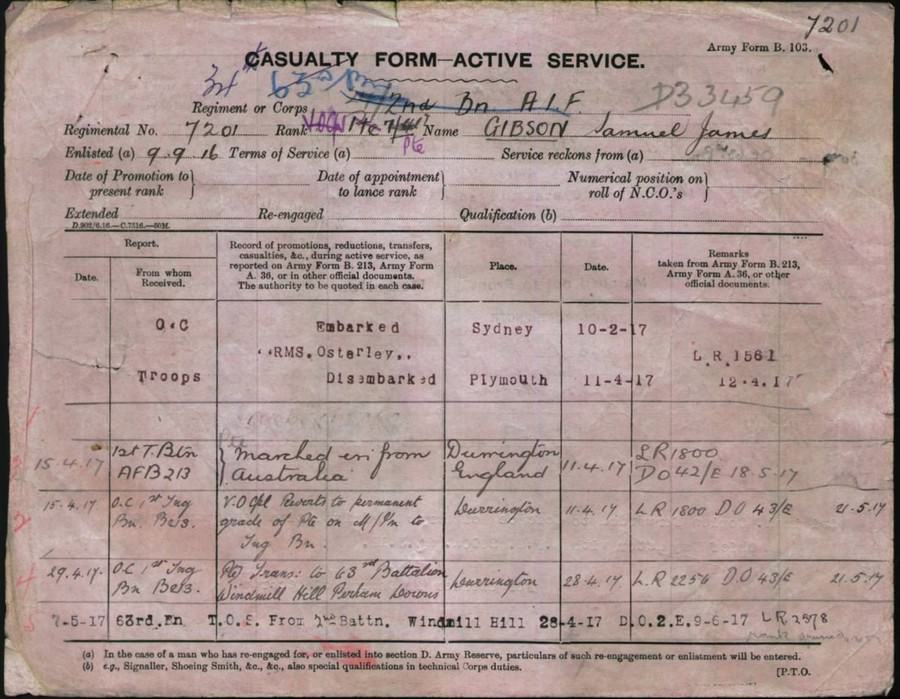 7201
Army Form B. 103.
CASUALTY FORM—ACTIVE SERVICE.
63rd Bn
Regiment or Corps 2nd Bn A.I.F. D33459
Regimental No. 7201 Rank Name GIBSON Samuel James
Pte
Enlisted (a) 9.9.16 Terms of Service (a) Service reckons from (a)
Date of Promotion to present rank } Date of appointment to lance rank } Numerical position on roll of N.C.O.'s }
Extended Re-engaged Qualification (b)
D.902/6.16.—C.7516.—50M.
Report. Record of promotions, reductions, transfers, casualties, &c., during active service, as reported on Army Form B. 213, Army Form A. 36, or in other official documents. The authority to be quoted in each case. Place. Date. Remarks taken from Army Form B. 213, Army Form A. 36, or other official documents.
Date. From whom Received.
O.C Embarked Sydney 10-2-17
RMS. Osterley. L.R.1561
Troops Disembarked Plymouth 11-4-17 12.4.17
1
3 15.4.17 1st T. Btn AFB213 Marched in from Australia Durrington England 11.4.17 LR1800 DO42/E 18.5.17
2 15.4.17 O.C 1st Tng Bn. B213. V.O Cpl Reverts to permanent grade of Pte on M/In to Tng Bn. Durrington 11.4.17 L R 1800 D O 43/E 21.5.17
4 29.4.17. O.C 1st Tng Bn B213. Pte Trans: to 63rd Battalion Windmill Hill Perham Downs Durrington 28.4.17 L.R 2256 D.O 43/E 21.5.17
5 7-5-17 63rd.Bn T.O.S. From 2nd Battn. Windmill Hill 28-4-17 D.O.2.E.9-6-17 LR 2378
(a) In the case of a man who has re-engaged for, or enlisted into section D. Army Reserve, particulars of such re-engagement or enlistment will be entered.
(b) e.g., Signaller, Shoeing Smith, &c., &c., also special qualifications in technical Corps duties.
[P.T.O.